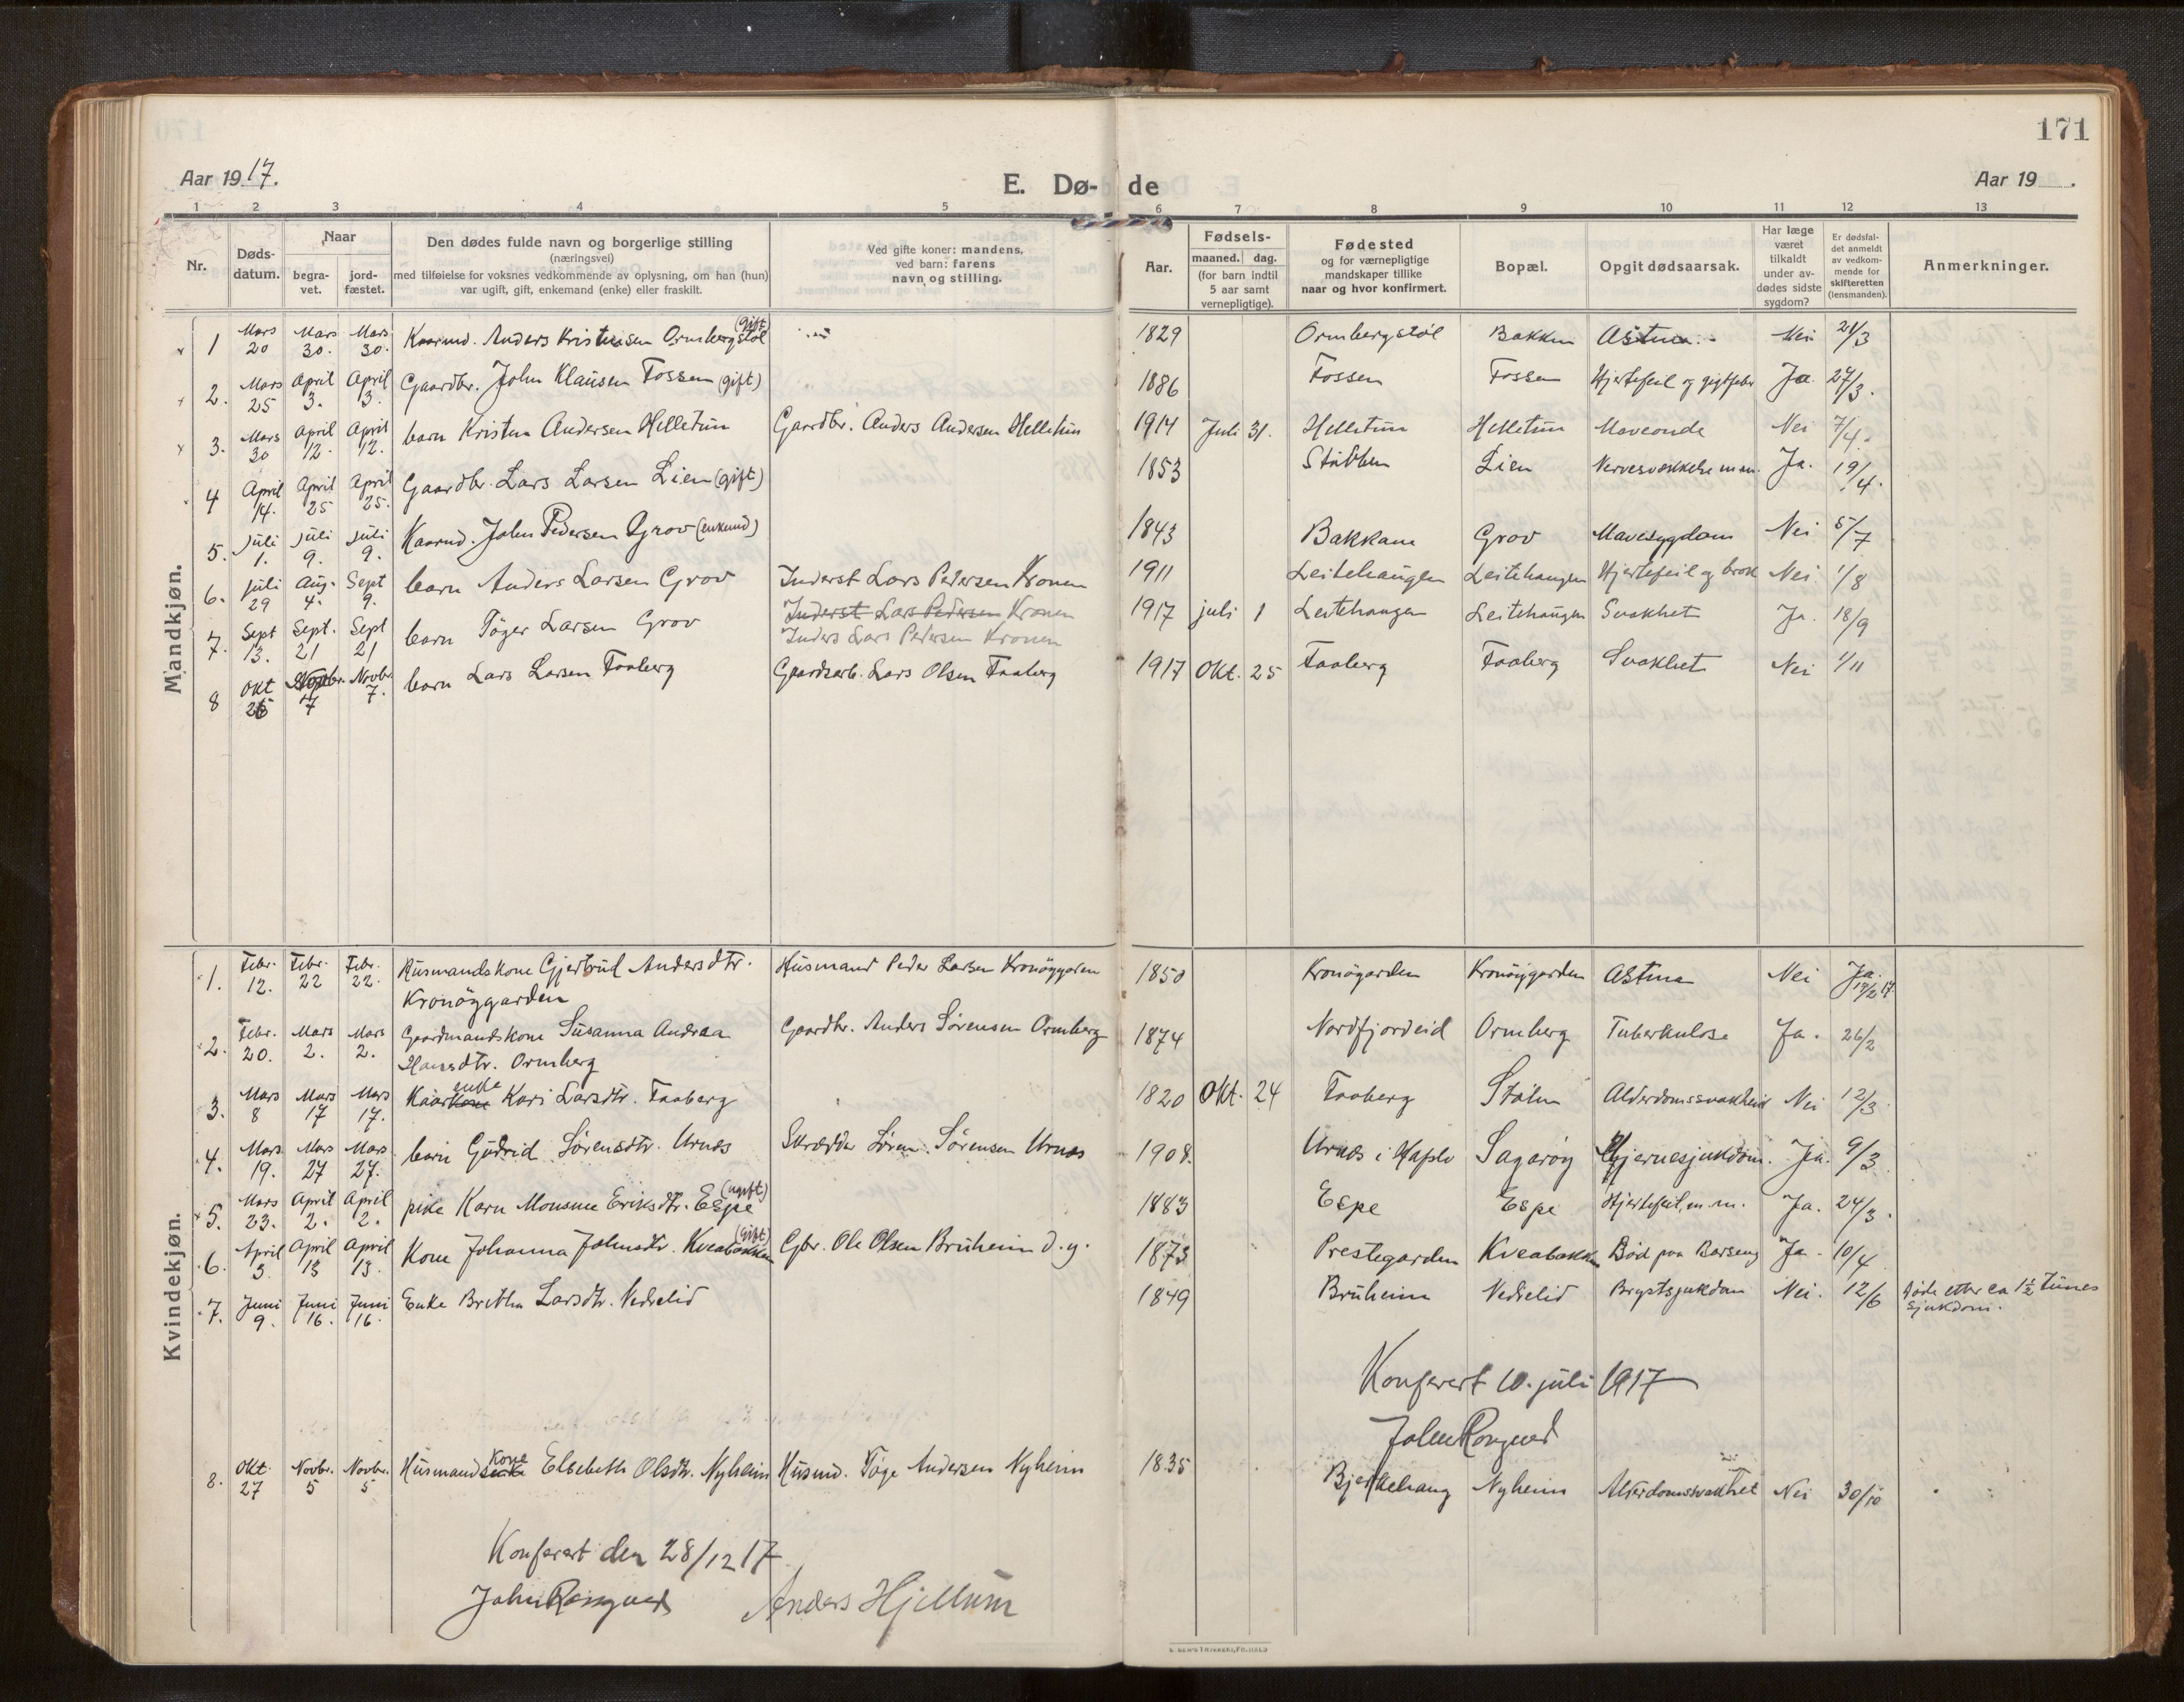 171
Aar 1917.
E. Dø- de
Aar 19 .
1 2 3 4 5 6 7 8 9 10 11 12 13
Nr.
Døds-
datum.
Naar
begra-
vet.
jord-
fæstet.
Den dødes fulde navn og borgerlige stilling
(næringsvei)
med tilføielse for voksnes vedkommende av oplysning, om han (hun)
var ugift, gift, enkemand (enke) eller fraskilt.
Ved gifte koner: mandens,
ved barn: farens
navn og stilling.
Aar.
Fødsels-
maaned. dag.
(for barn indtil
5 aar samt
vernepligtige).
Fødested
og for værnepligtige
mandskaper tillike
naar og hvor konfirmert.
Bopæl.
Opgit dødsaarsak.
Har læge
været
tilkaldt
under av-
dødes sidste
sygdom?
Er dødsfal-
det anmeldt
av vedkom-
mende for
skifteretten
(lensmanden).
Anmerkninger.
Mandkjøn.
1 Mars 20 Mars 30. Mars 30. Kaarmd. Anders Kristensen Ormbergstøl (gift) 1829 Ormbergstøl Bakken Astma Nei 21/3
2. Mars 25 April 3. April 3. Gaardbr. John Klausen Fossen (gift) 1886 Fossen Fossen Hjertefeil og gigtfeber Ja. 27/3.
3. Mars 30 April 12. April 12. barn Kristen Andersen Helletun Gaardbr. Anders Andersen Helletun 1914 Juli 31. Helletun Helletun Maveonde Nei 7/4.
4 April 14. April 25 April 25. Gaardbr. Lars Larsen Lien (gift) 1853 Stubben Lien Nervesvekkelse m.m. Ja. 19/4.
5. juli 1. juli 9. juli 9. Kaarmd. John Pedersen Grov (enkmd) 1843 Bakkane Grov Mavesygdom Nei 5/7
6. Juli 29 Aug. 4. Sept 9. barn Anders Larsen Grov Inderst Lars Pedersen Kronen 1911 Leitehaugen Leitehaugen Hjertefeil og brok Nei 1/8
7. Sept 13. Sept. 21 Sept 21 barn Tøger Larsen Grov Inderst Lars Pedersen Kronen 1917 juli 1 Leitehaugen Leitehaugen Svakhet Ja. 18/9
Inders Lars Pedersen Kronen
8 Okt 25 Novbr. 7 Novbr. 7. barn Lars Larsen Faaberg Gaardsarb. Lars Olsen Faaberg 1917 Okt. 25 Faaberg Faaberg Svakhet Nei 1/11
Kvindekjøn.
1. Febr. 12. Febr. 22 Febr. 22. Husmandskone Gjertrud Andersdtr. Husmand Peder Larsen Kronøygarden 1850 Kronøgarden Kronøygarden Astma Nei Ja. 17/2 17.
Kronøygarden
2. Febr. 20. Mars 2. Mars 2. Gaardmandskone Susanna Andrea Gaardbr. Anders Sørensen Ormberg 1874 Nordfjordeid Ormberg Tuberkulose Ja. 26/2
Hansdtr. Ormberg
3. Mars 8 Mars 17 Mars 17. Kaarkone enke Kari Larsdtr. Faaberg 1820 Okt. 24 Faaberg Stølen Alderdomssvakheid Nei 12/3
4. Mars 19. Mars 27 Mars 27. barn Gudrid Sørensdtr. Urnes Skrædder Søren Sørensen Urnes 1908. Urnes i Hafslo Sagarøy Hjernesjukdom. Ja. 9/3
5. Mars 23. April 2. April 2. pike Karn Monsine Eriksdtr. Espe (ugift) 1883 Espe Espe Hjertefeil m.m. Ja. 24/3.
6. April 3. April 13 April 13. Kone Johanna Johnsdtr. Kveabakken (gift) Gbr. Ole Olsen Bruheim d.y. 1873 Prestegarden Kveabakken Død paa Barseng Ja. 10/4
7. Juni 9. Juni 16. Juni 16. Enke Britha Larsdtr. Vedvelid 1849 Bruheim Vedvelid Brystsjukdom Nei. 12/6 Døde etter ca 1½ times
sjukdom.
Konferert 10. juli 1917
8. Okt. 27 Novbr. 5 Novbr. 5 Husmandsenke kone Elsebeth Olsdtr. Nyheim Husmd. Tøge Andersen Nyheim 1835 Bjerkehaug Nyheim Alderdomssvakhet Nei 30/10
Konferert den 28/12 17
Anders Hjellum